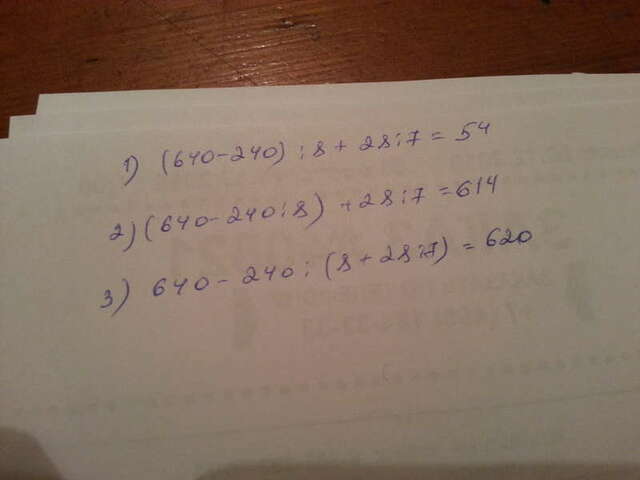 1) (640-240):8+28:7=54
2) (640-240:8)+28:7=614
3) 640-240:(8+28:7)=620